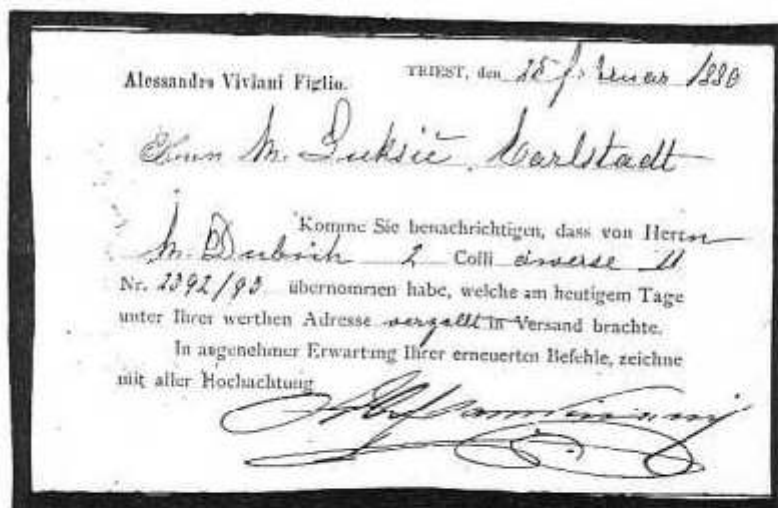 Alessandro Viviani Figlio.
TRIEST, den 25 Februar 1880
Herrn M. Duksić, Carlstadt
Komme Sie benachrichtigen, dass von Herrn
M. 2 Colli diverse
Nr. 2392/93 übernommen habe, welche am heutigem Tage
unter Ihrer werthen Adresse verzollt in Versand brachte.
In angenehmer Erwartung Ihrer erneuerten Befehle, zeichne
mit aller Hochachtung